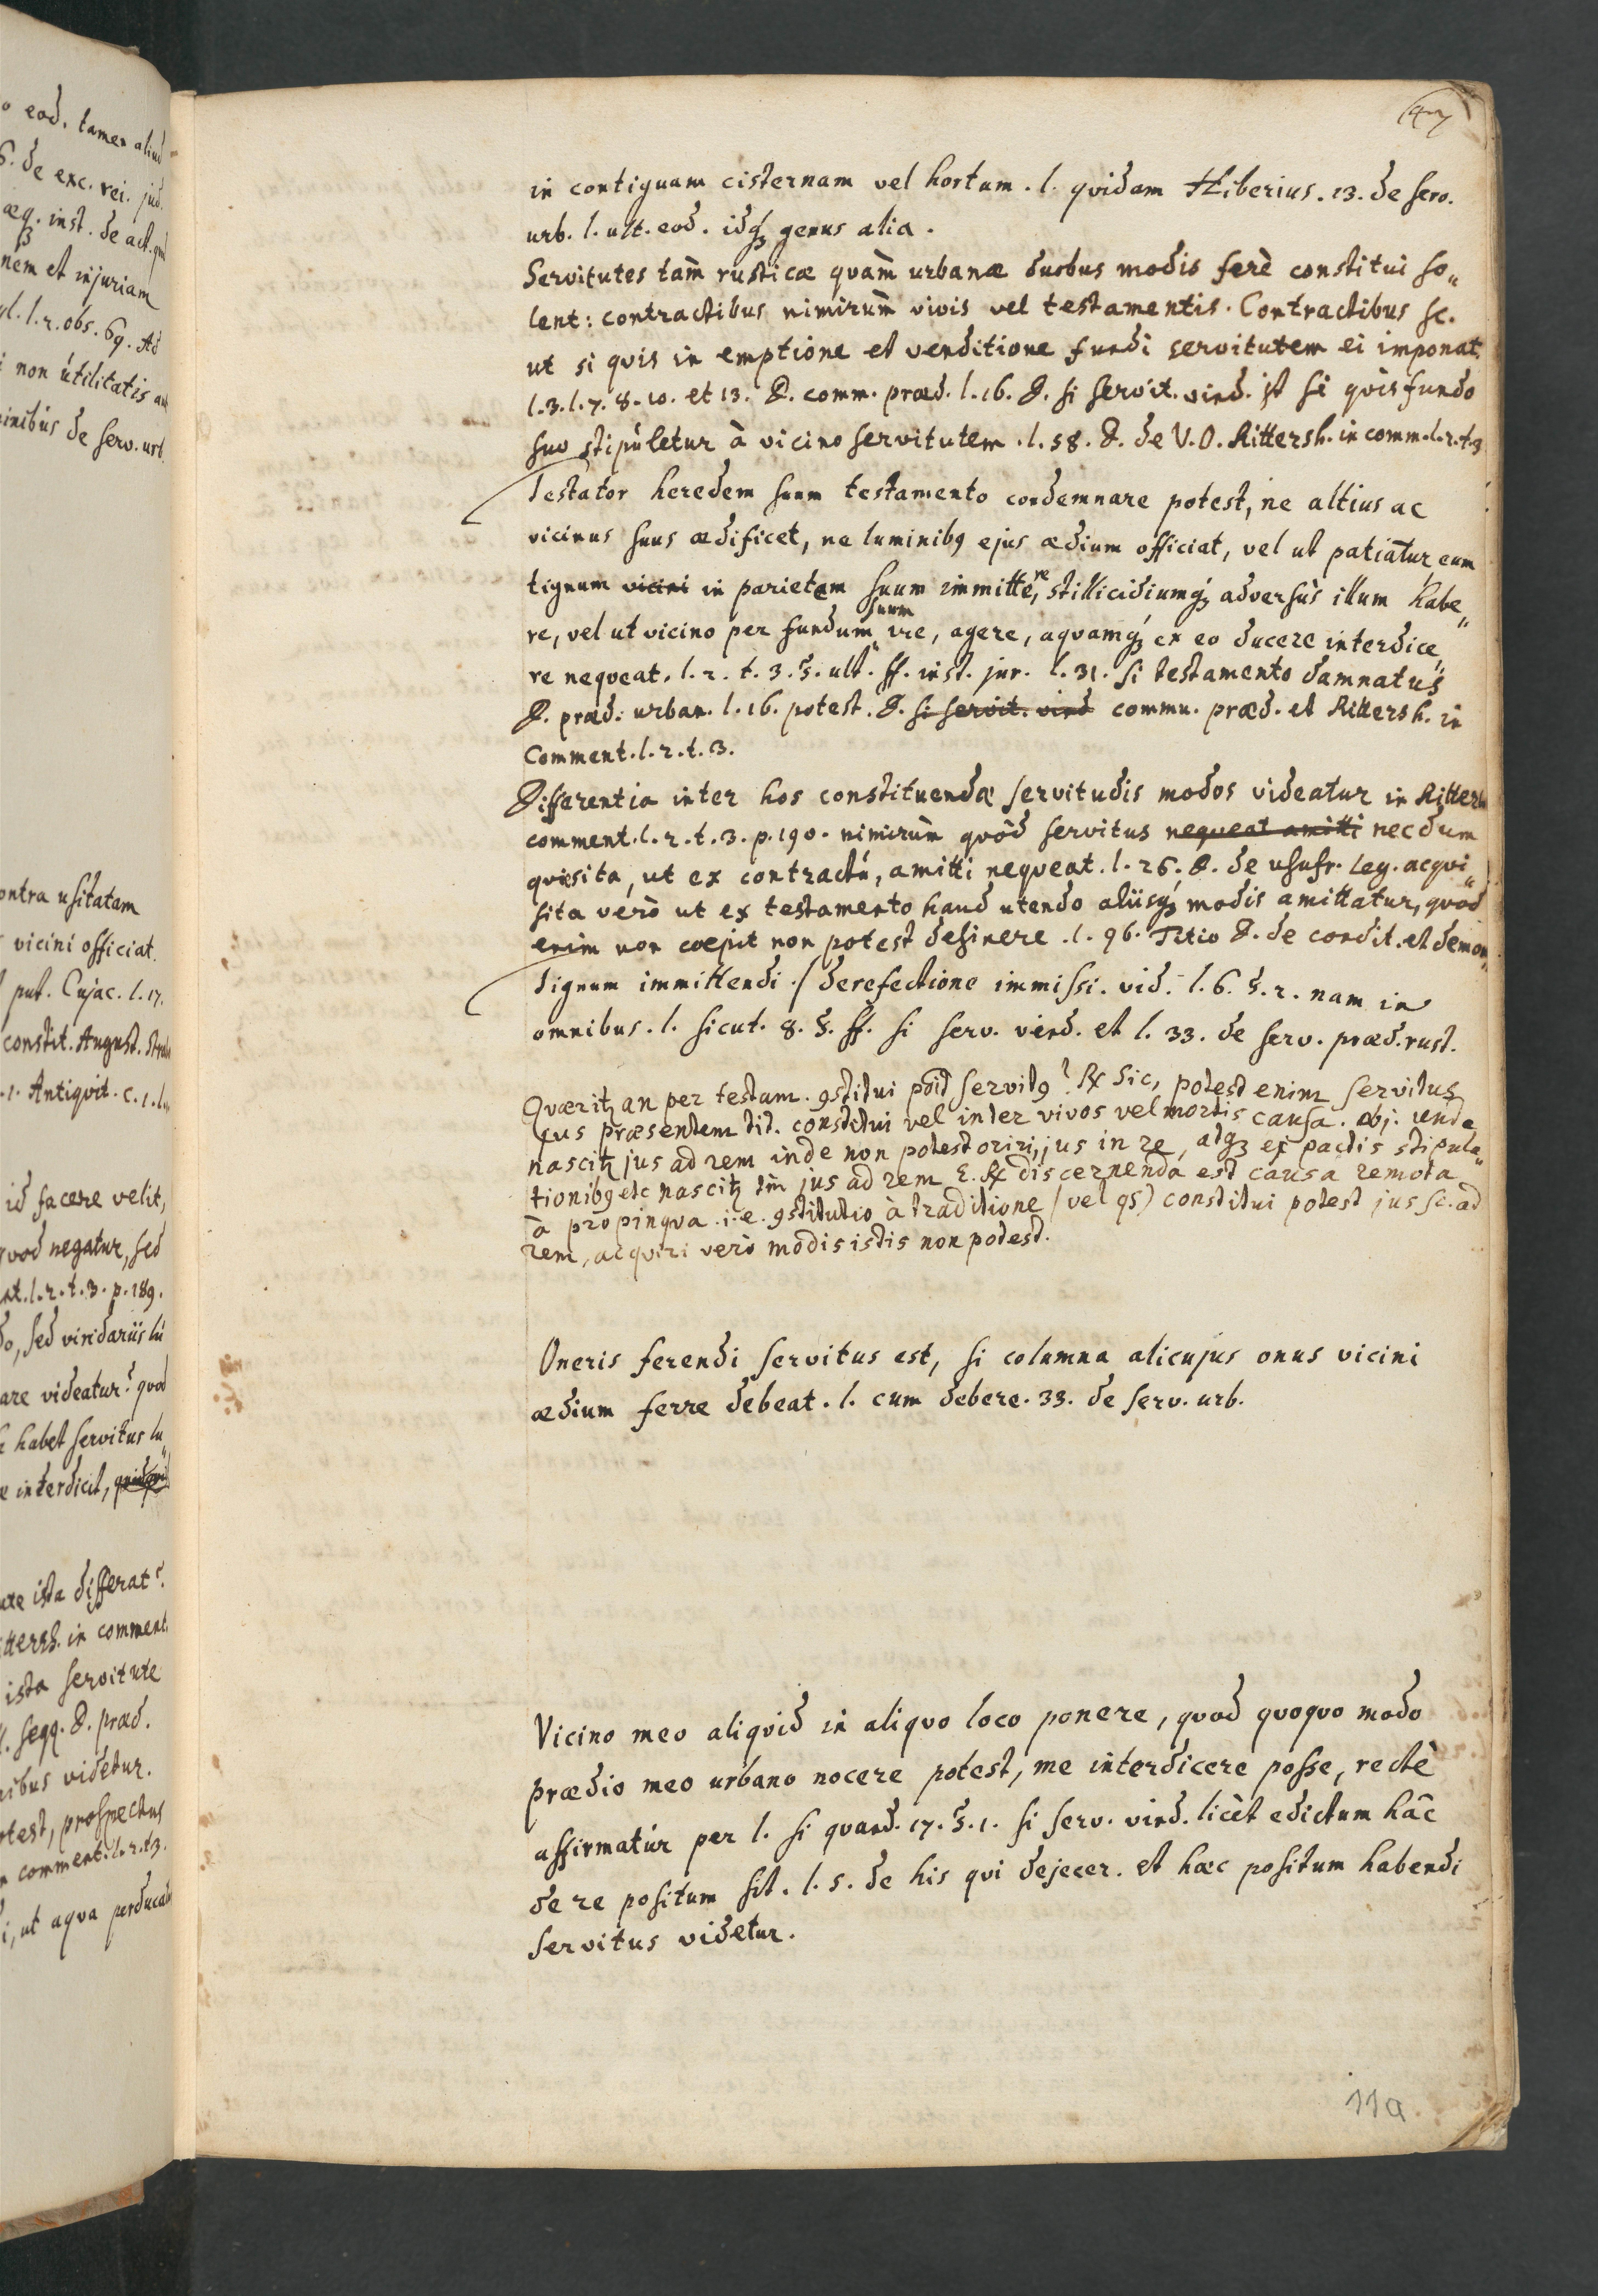 o eod. tamen aliud
6. de exc. rei. jud.
æq. inst. de act. qui
nem et injuriam
l. l. 2. obs. 69. Ad
i non utilitatis au
inibus de serv. urb.
ontra usitatam
vicini officiat.
put. Cujac. l. 17.
constit. August.
.1. Antiqvit. c. 1. l.
id facere velit,
qvod negatur, sed
nt. l. 2. t. 3. p. 189.
do, sed viridariis lu
are videatur? qvod
habet servitus lu„
e interdicit,
ute ista differat?
ittersh. in comment.
ista servitute
l. seqq. D. præd.
nibus videtur.
otest, prospectus
n comment. l. 2. t. 3.
i, ut aqva perducat
47
in contiguam cisternam vel hortum. l. qvidam Hiberius. 13. de serv.
urb. l. ult. eod. idq; genus alia.
Servitutes tàm rusticæ qvàm urbanæ duobus modis ferè constitui so„
lent: contractibus nimirùm vivis vel testamentis. Contractibus sc.
ut si qvis in emptione et venditione fundi servitutem ei imponat.
l. 3. l. 7. 8. 10. et 13. D. comm. præd. l. 16. D. si servit. vind. it si qvis fundo
suo stipuletur à vicino servitutem. l. 58. D. de V. O. Rittersh. in comm. l. 2. t. 3
Testator heredem suum testamento condemnare potest, ne altius ac
vicinus suus ædificet, ne luminibq ejus ædium officiat, vel ut patiatur eum
tignum vicini in parietem suum immittere, stillicidiumq; adversùs illum habe„
re, vel ut vicino per fundum suum ire, agere, aqvamq; ex eo ducere interdice„
re neqveat. l. 2. t. 3. §. ult. ff. inst. jur. l. 31. si testamento damnatus
D. præd. urban. l. 16. potest. D. si servit. vind commu. præd. et Rittersh. in
Comment. l. 2. t. 3.
Differentia inter hos constituendæ servitudis modos videatur in Rittersh
comment. l. 2. t. 3. p. 190. nimirùm qvòd servitus neqveat amitti necdum
qvæsita, ut ex contractu, amitti neqveat. l. 26. D. de usufr. leg. acqvi„
sita verò ut ex testamento haud utendo aliisq; modis amittatur, qvod
enim non coepit non potest desinere. l. 96. Titio D. de condit. et demon„
Tignum immittendi / de refectione immissi. vid. l. 6. §. 2. nam in
omnibus. l. sicut. 8. §. ff. si serv. vind. et l. 33. de serv. præd. rust.
Qværitz an per testam. 9stitui poit servit9? Rx Sic, potest enim servitus
jus præsentem tit. constitui vel inter vivos vel mortis causa. obj. unde
nascitz jus ad rem inde non potest oriri, jus in re, atq; ex pactis stipula„
tionib9 etc nascitz tm jus ad rem E. Rx discernenda est causa remota
à propinqva. i. e. 9stitutio à traditione (vel qs) constitui potest jus sc. ad
rem, acqviri verò modis istis non potest.
Oneris ferendi servitus est, si columna alicujus onus vicini
ædium ferre debeat. l. cum debere. 33. de serv. urb.
Vicino meo aliqvid in aliqvo loco ponere, qvod qvoqvo modo
prædio meo urbano nocere potest, me interdicere posse, rectè
affirmatur per l. si qvand. 17. §. 1. si serv. vind. licèt edictum hâc
de re positum sit. l. 5. de his qvi dejecer. et hæc positum habendi
servitus videtur.
11a